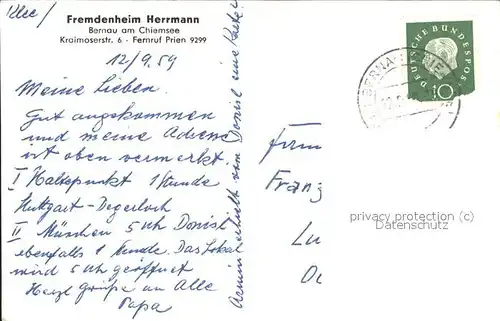 Fremdenheim Herrmann
Bernau am Chiemsee
Kraimoserstr. 6 - Fernruf Prien 9299
12/9.59
Meine Lieben.
Gut angekommen
und meine Adresse
ist oben vermerkt.
I Haltepunkt 1 Stunde
Stuttgart-Degerloch
II München 5 Uhr Donisl
ebenfalls 1 Stunde. Das Lokal
wird 5 Uhr geöffnet
Herzl. Grüße an Alle
Papa
Armin erhielt vom Donisl eine Karte.
DEUTSCHE BUNDESPOST
10
BERNAU
Firma
Franz
privacy protection (c)
Datenschutz